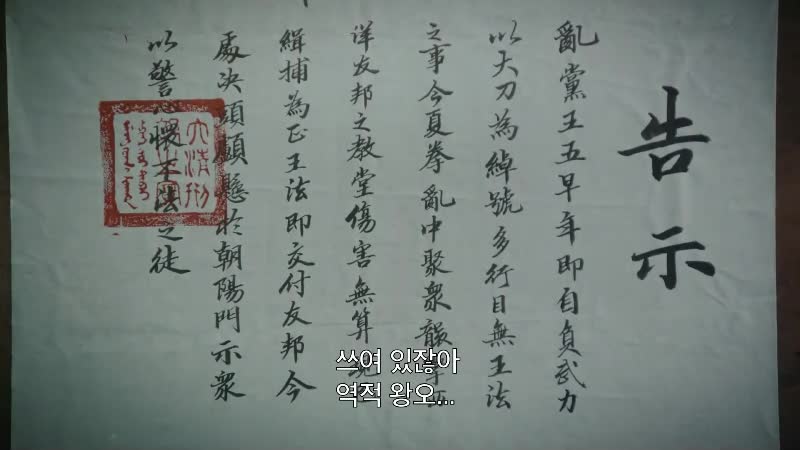 告示
亂黨王五早年即自負武力
以大刀為綽號多行目無王法
之事今夏拳亂中聚眾
洋友邦之教堂傷害無算
緝捕為正王法即交付友邦今
處決頭顱懸於朝陽門示眾
以警心懷不法之徒
大清刑
쓰여 있잖아
역적 왕오...